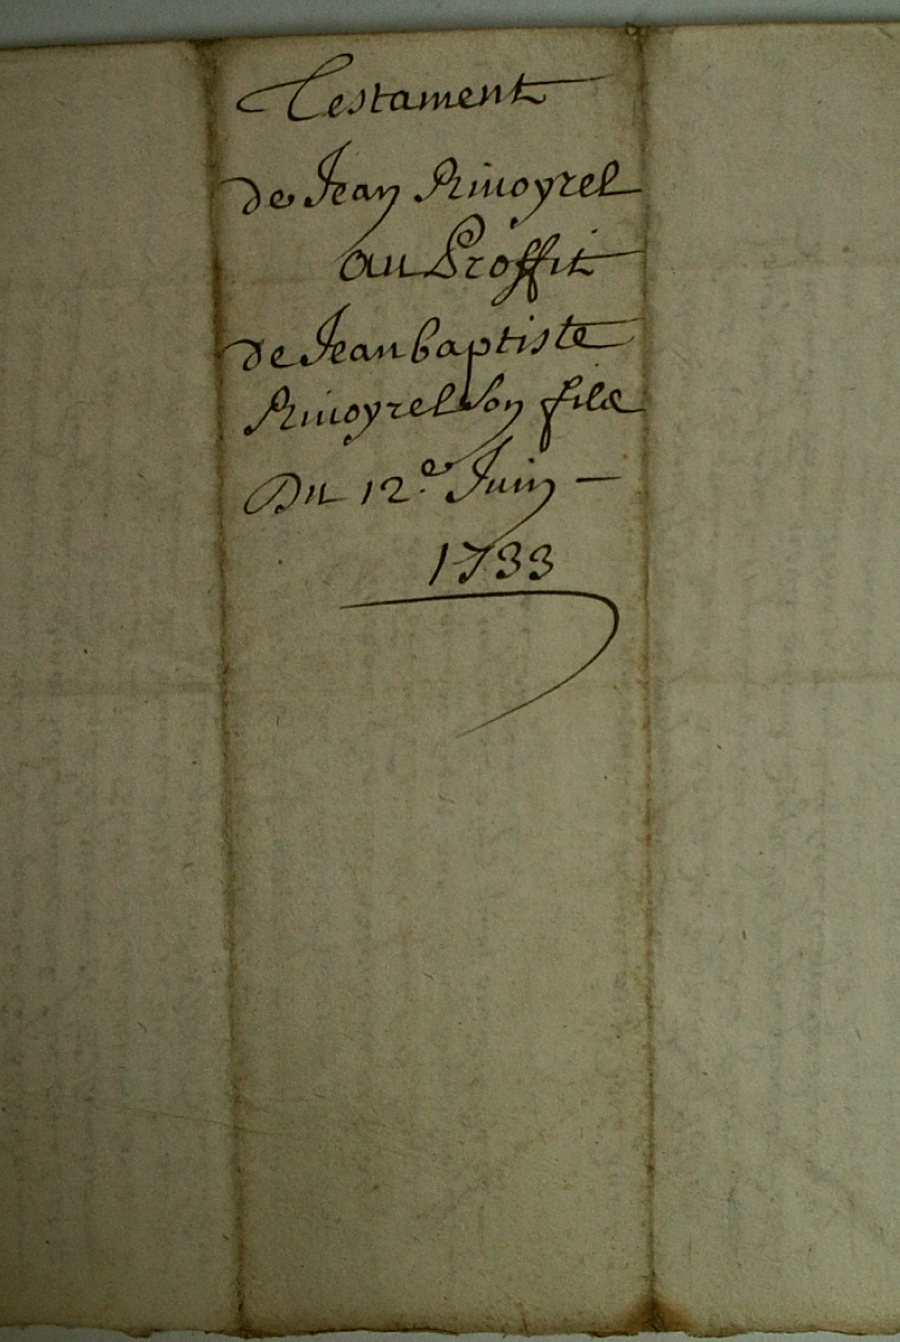 Testament
de Jean Rivoyrel
au Proffit
de Jean baptiste
Rivoyrel son fils
Du 12e. Juin —
1733